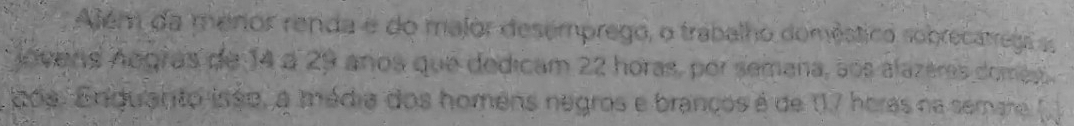 Além da menor renda e do maior desemprego, o trabalho doméstico sobrecarrega as
jovens negras de 14 a 29 anos que dedicam 22 horas, por semana, aos afazeres domésti-
cos. Enquanto isso, a média dos homens negros e brancos é de 11,7 horas na semana [...]